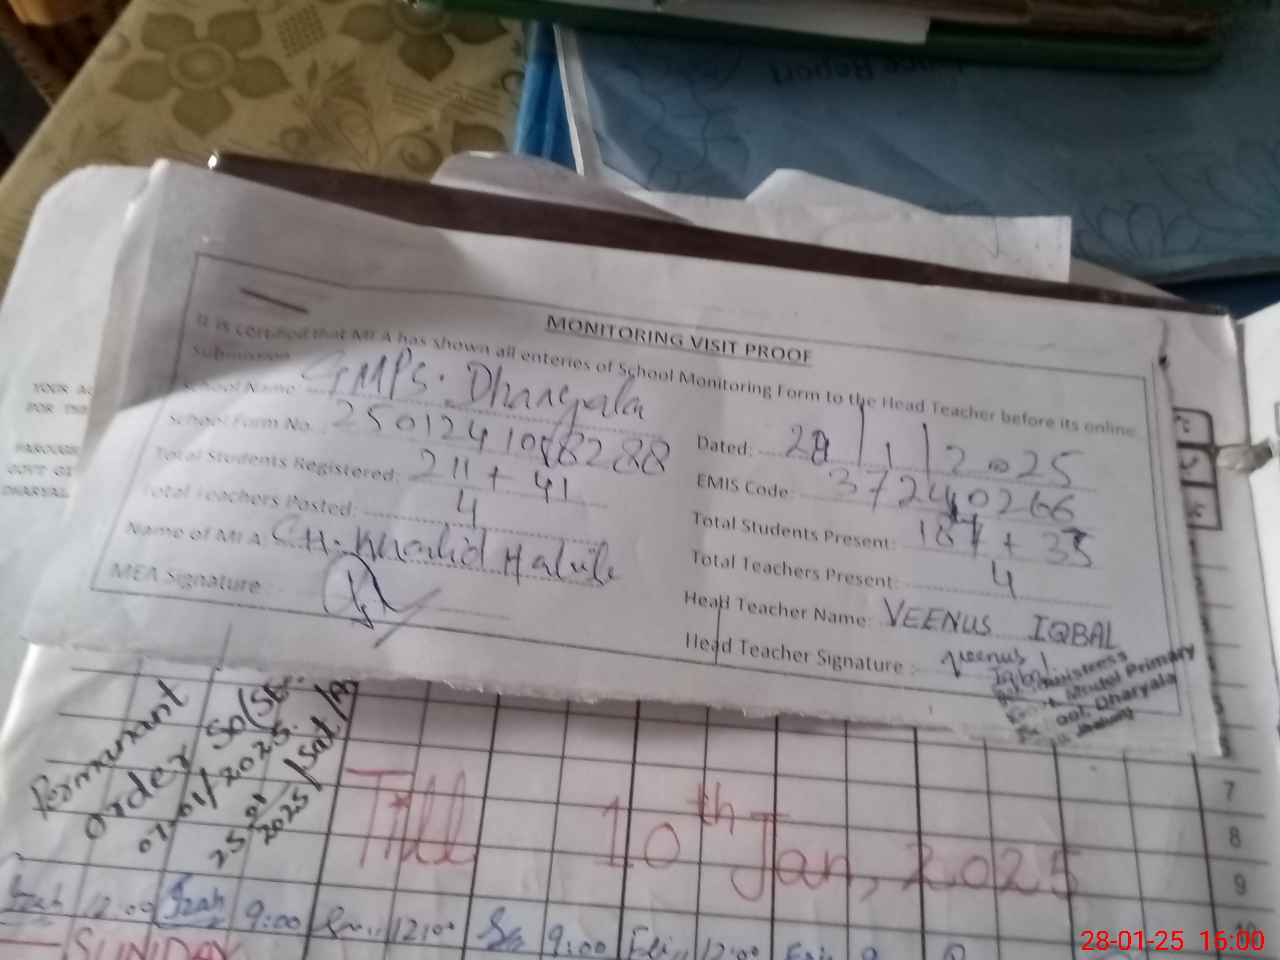 MONITORING VISIT PROOF
It is certified that MEA has shown all enteries of School Monitoring Form to the Head Teacher before its online
Submission.
School Name: GMPS. Dharyala
Dated: 28/1/2025
School Form No.: 
EMIS Code: 37240266
Total Students Registered: 211 + 41
Total Students Present: 187 +
Total Teachers Posted: 4
Total Teachers Present: 4
Name of MEA: CH. Khalid Habib
Head Teacher Name: VEENUS IQBAL
MEA Signature:
Head Teacher Signature: Veenus Iqbal
Model Primary
Dharyala
YOUR
FOR THE
THROUGH
GOVT
DHARYAL
Permanant
order
07/01/2025.
25/01/2025
Till 10th Jan, 2025
7
8
9
10
12:00 9:00 12:00 9:00 12:00 9
SUNDAY
28-01-25 16:00